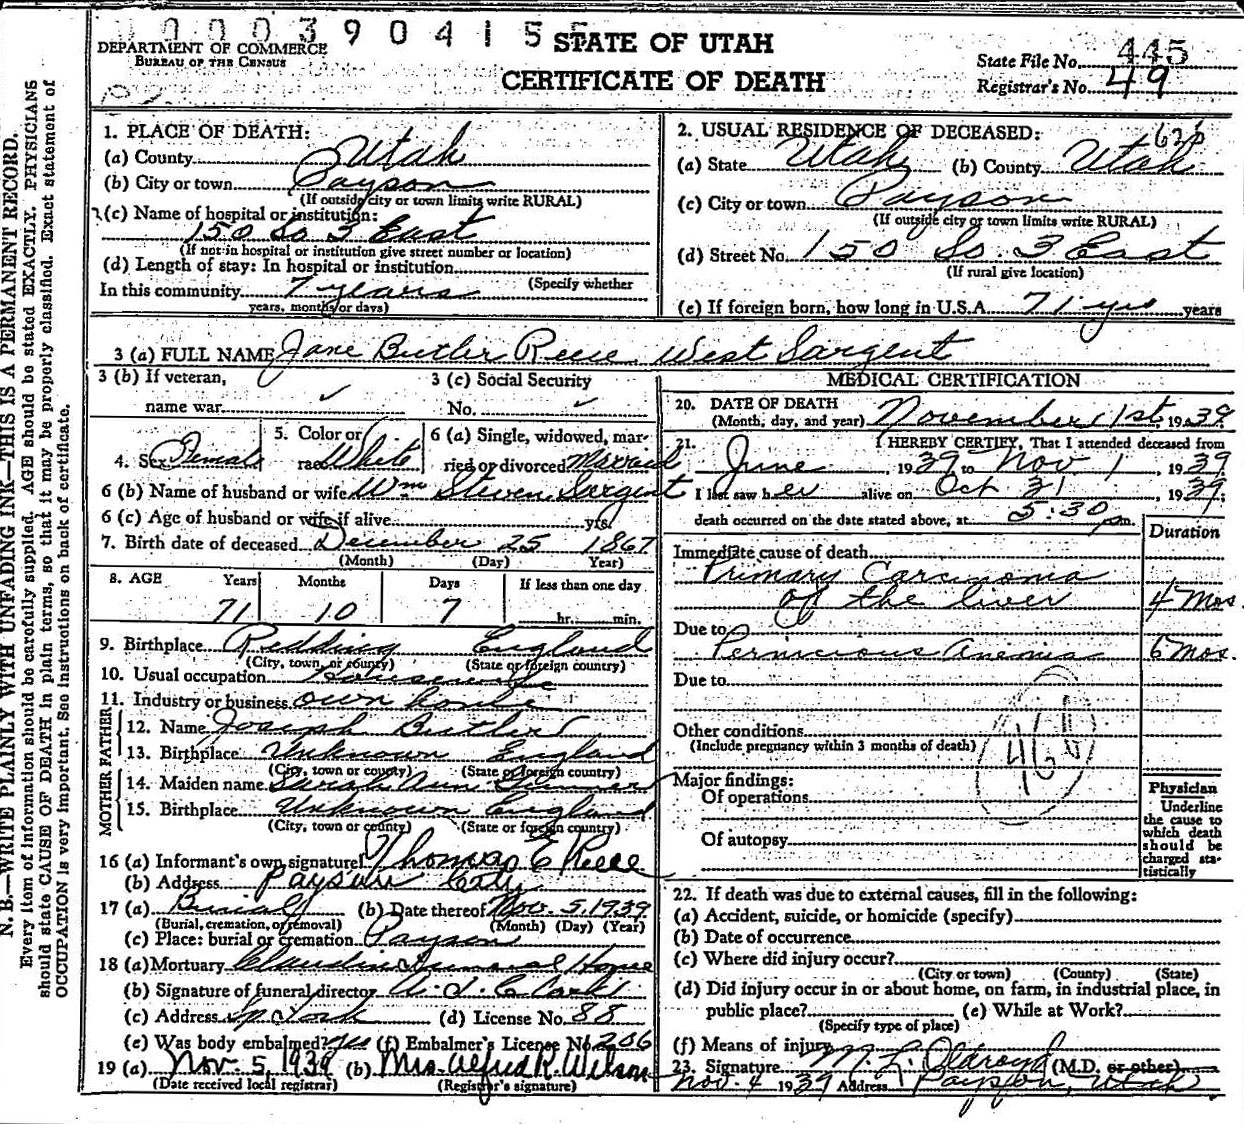 0003904155
DEPARTMENT OF COMMERCE
BUREAU OF THE CENSUS
STATE OF UTAH
CERTIFICATE OF DEATH
State File No. 445
Registrar's No. 49
N. B.—WRITE PLAINLY WITH UNFADING INK—THIS IS A PERMANENT RECORD.
Every item of information should be carefully supplied. AGE should be stated EXACTLY. PHYSICIANS
should state CAUSE OF DEATH in plain terms, so that it may be properly classified. Exact statement of
OCCUPATION is very important. See instructions on back of certificate.
1. PLACE OF DEATH:
(a) County Utah
(b) City or town Payson
(If outside city or town limits write RURAL)
(c) Name of hospital or institution:
150 So 3 East
(If not in hospital or institution give street number or location)
(d) Length of stay: In hospital or institution
(Specify whether
In this community 7 years
years, months or days)
2. USUAL RESIDENCE OF DECEASED:
(a) State Utah (b) County Utah
(c) City or town Payson
(If outside city or town limits write RURAL)
(d) Street No. 150 So. 3 East
(If rural give location)
(e) If foreign born, how long in U.S.A. 71 yrs years
3 (a) FULL NAME Jane Butler Reece West Sargent
3 (b) If veteran,
name war
3 (c) Social Security
No.
4. Sex Female
5. Color or
race White
6 (a) Single, widowed, mar-
ried or divorced Married
6 (b) Name of husband or wife Wm Steven Sargent
6 (c) Age of husband or wife if alive yrs.
7. Birth date of deceased December 25 1867
(Month) (Day) (Year)
8. AGE Years Months Days If less than one day
71 10 7 hr. min.
9. Birthplace Redding England
(City, town, or county) (State or foreign country)
10. Usual occupation Housewife
11. Industry or business own home
FATHER
12. Name Joseph Butler
13. Birthplace Unknown England
(City, town or county) (State or foreign country)
MOTHER
14. Maiden name Sarah Ann
15. Birthplace Unknown England
(City, town or county) (State or foreign country)
16 (a) Informant's own signature Thomas E Reece
(b) Address Payson City
17 (a) Burial (b) Date thereof Nov. 5, 1939
(Burial, cremation, or removal) (Month) (Day) (Year)
(c) Place: burial or cremation Payson
18 (a) Mortuary Claudin Funeral Home
(b) Signature of funeral director
(c) Address Sp. (d) License No. 88
(e) Was body embalmed? yes (f) Embalmer's License No. 206
19 (a) Nov. 5, 1939 (b) Mrs. Alfred R. Wilson
(Date received local registrar) (Registrar's signature)
MEDICAL CERTIFICATION
20. DATE OF DEATH
(Month, day, and year) November 1st, 1939
21. I HEREBY CERTIFY, That I attended deceased from
June, 1939 to Nov 1, 1939
I last saw her alive on Oct 31, 1939;
death occurred on the date stated above, at 5:30 pm.
Duration
Immediate cause of death
Primary Carcinoma
of the liver 4 Mos.
Due to
Pernicious Anemia 6 Mos.
Due to
Other conditions
(Include pregnancy within 3 months of death)
Major findings:
Of operations
Of autopsy
Physician
Underline
the cause to
which death
should be
charged sta-
tistically
22. If death was due to external causes, fill in the following:
(a) Accident, suicide, or homicide (specify)
(b) Date of occurrence
(c) Where did injury occur?
(City or town) (County) (State)
(d) Did injury occur in or about home, on farm, in industrial place, in
public place? (e) While at Work?
(Specify type of place)
(f) Means of injury
23. Signature M. L. Oldroyd (M.D. or other)
Nov. 4 1939 Address Payson, Utah